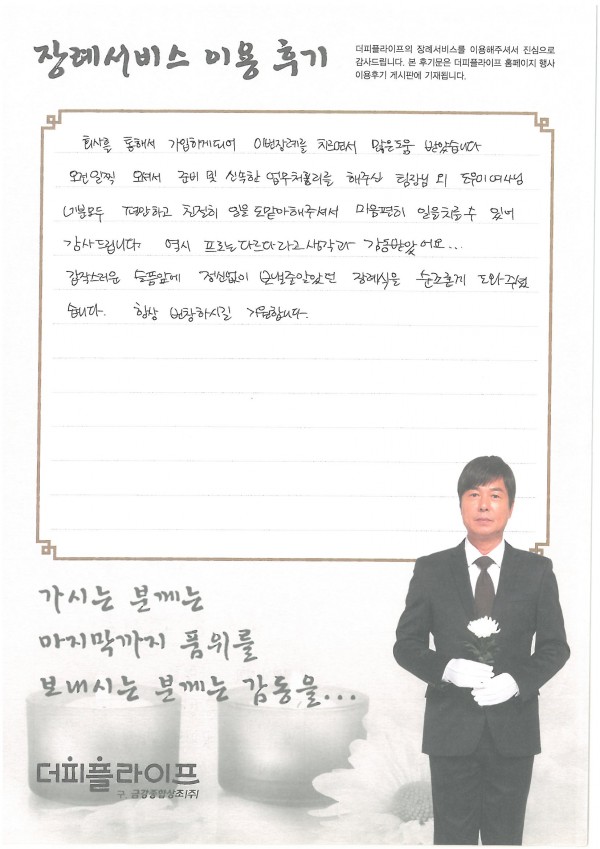 장례서비스 이용 후기
더피플라이프의 장례서비스를 이용해주셔서 진심으로
감사드립니다. 본 후기문은 더피플라이프 홈페이지 행사
이용후기 게시판에 기재됩니다.
회사를 통해서 가입하게되어 이번장례를 치르면서 많은도움 받았습니다
오전일찍 오셔서 준비 및 신속한 업무처리를 해주신 팀장님 외 도우미여사님
네분모두 편안하고 친절히 일을 도맡아해주셔서 마음편히 일을치룰수 있어
감사드립니다. 역시 프로는다르다라고생각과 감동받았어요...
갑작스러운 슬픔앞에 정신없이 보낼줄알았던 장례식을 순조롭게 도와주셨
습니다. 항상 번창하시길 기원합니다.
가시는 분께는
마지막까지 품위를
보내시는 분께는 감동을...
더피플라이프
구. 금강종합상조(주)